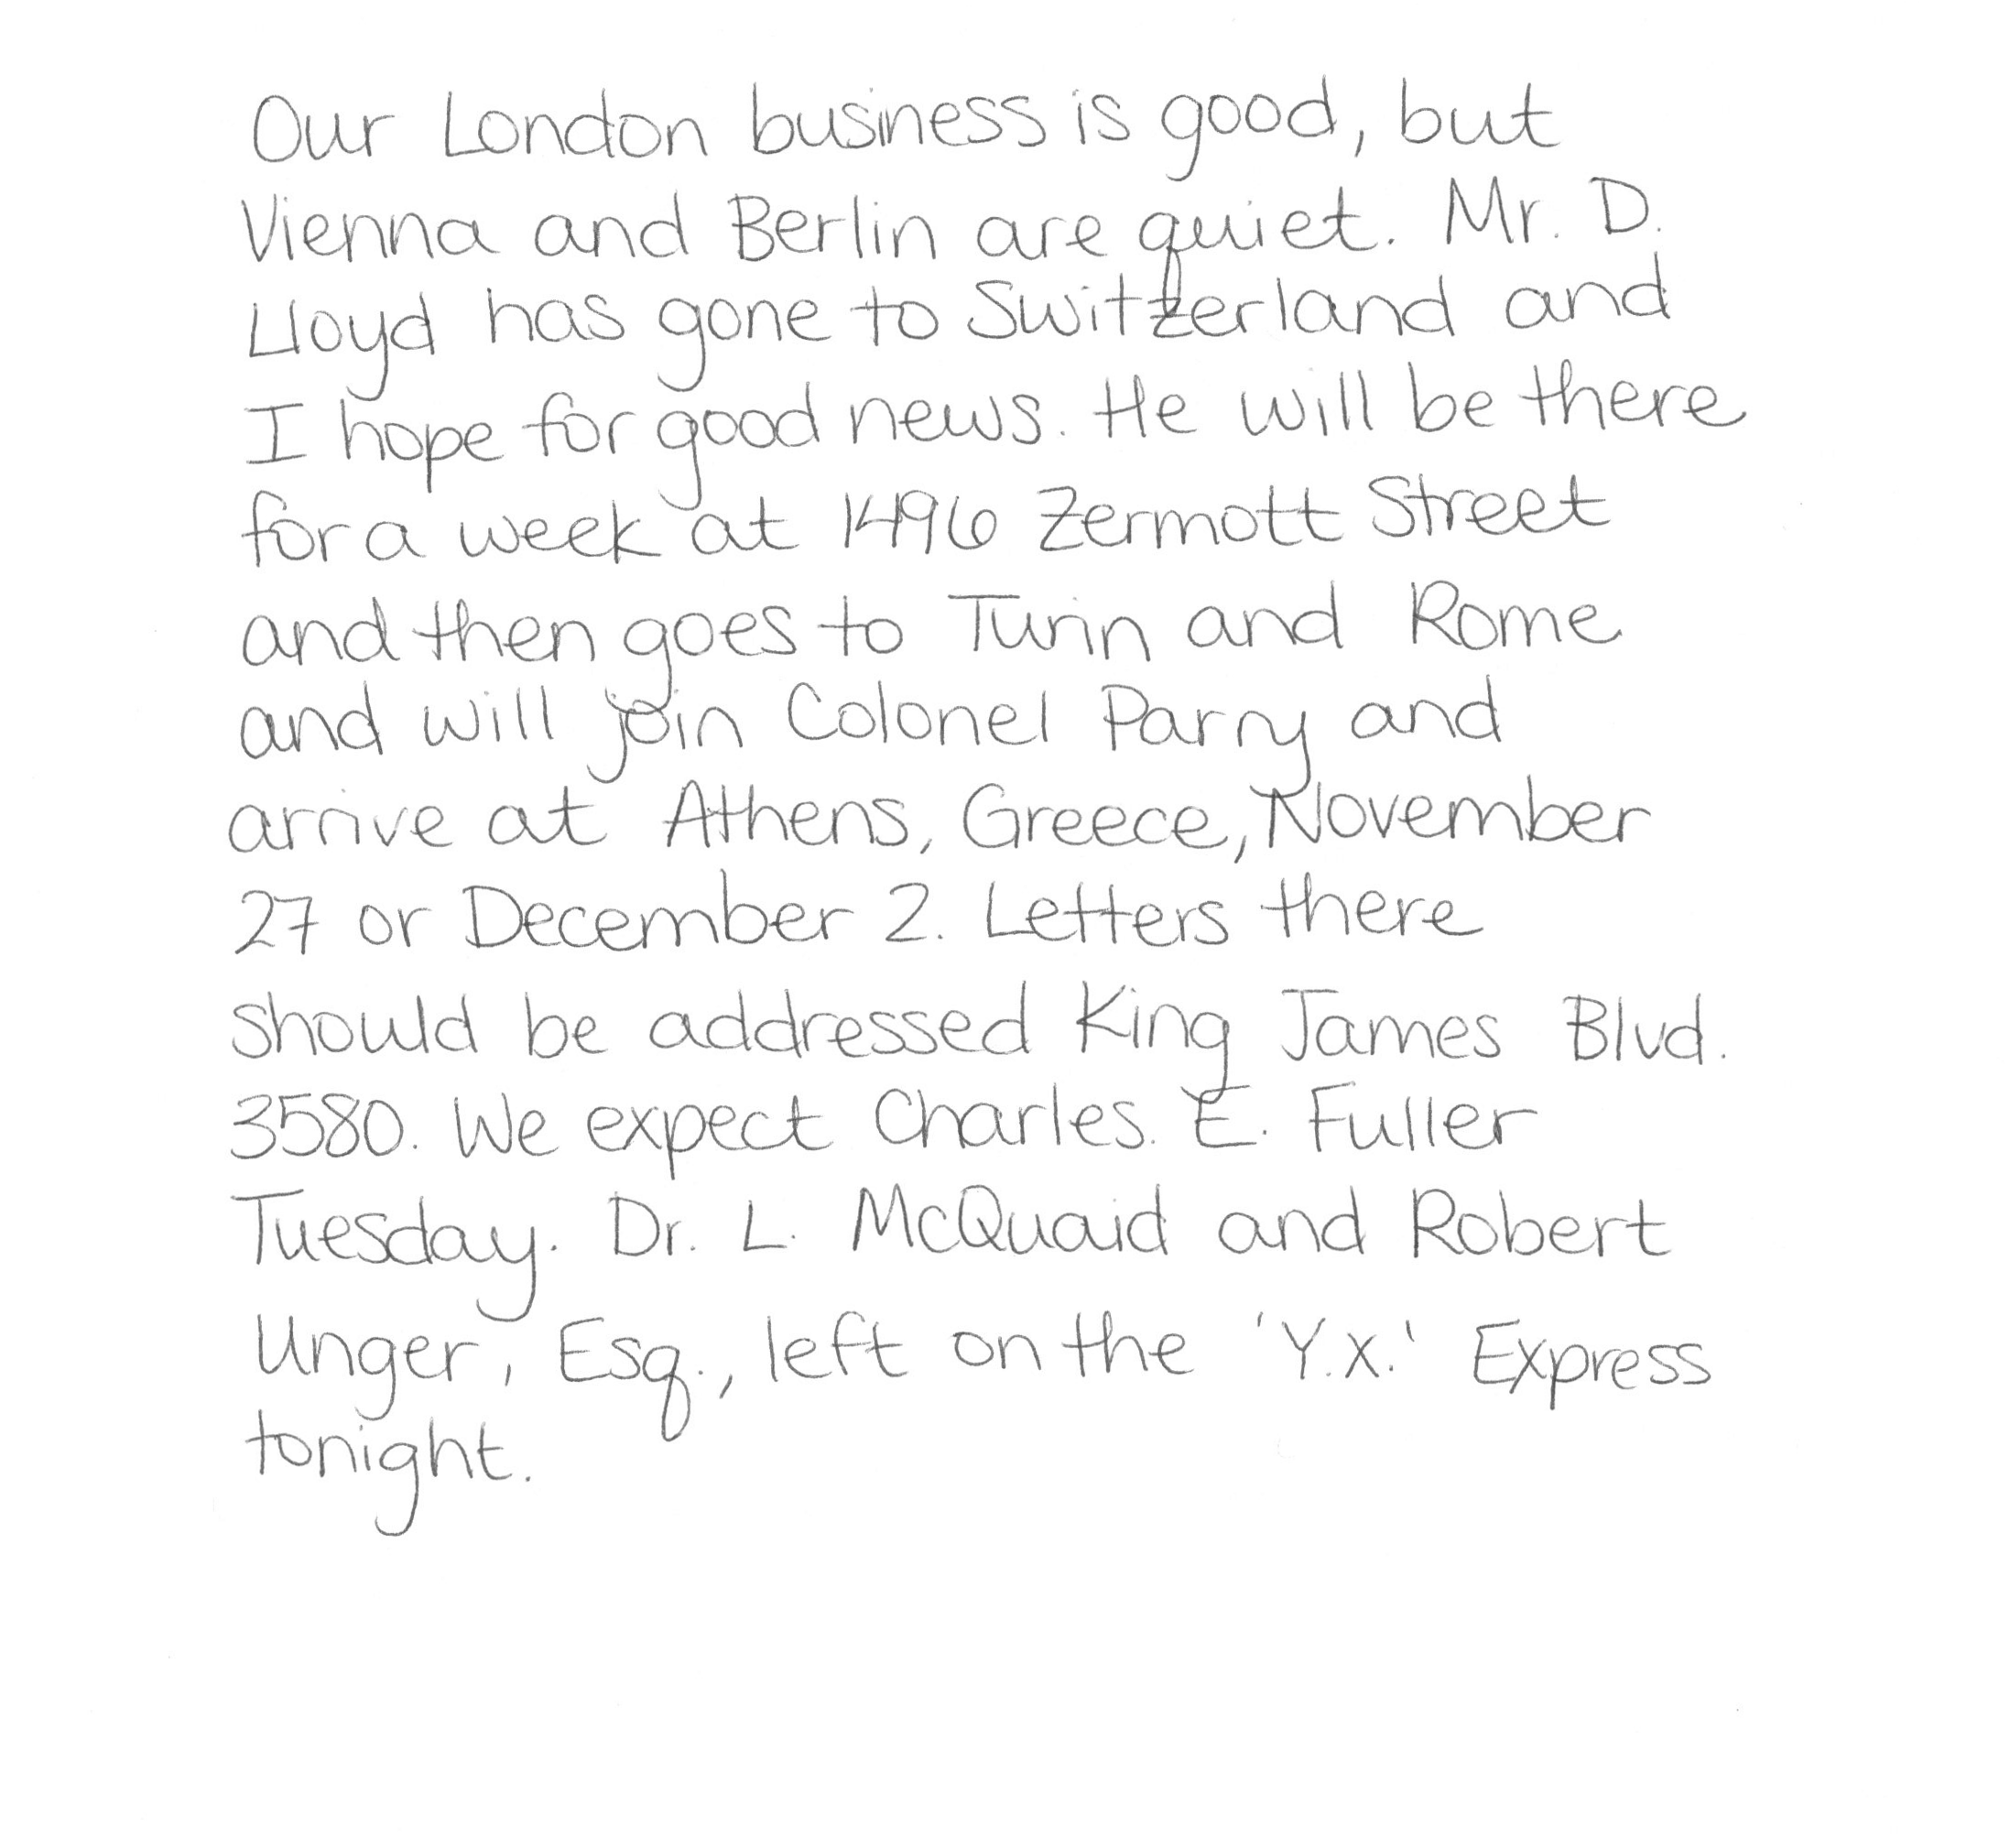 Our London business is good, but
Vienna and Berlin are quiet. Mr. D.
Lloyd has gone to Switzerland and
I hope for good news. He will be there
for a week at 1496 Zermott Street
and then goes to Turin and Rome
and will join Colonel Parry and
arrive at Athens, Greece, November
27 or December 2. Letters there
should be addressed King James Blvd.
3580. We expect Charles. E. Fuller
Tuesday. Dr. L. McQuaid and Robert
Unger, Esq., left on the 'Y.X.' Express
tonight.